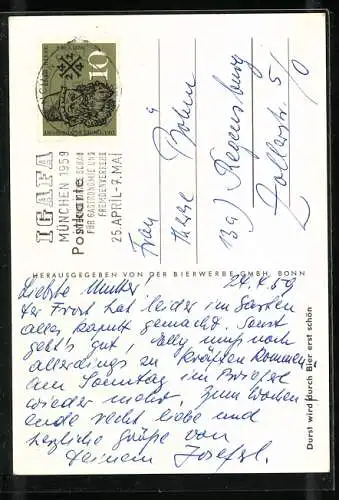 10
IGAFA
MÜNCHEN 1959
FÜR GASTRONOMIE UND
FREMDENVERKEHR
25. APRIL-7. MAI
Postkarte
Frau
Therese Bohm
13a) Regensburg
Zollerstr. 5/0
HERAUSGEGEBEN VON DER BIERWERBE GMBH, BONN
Durst wird durch Bier erst schön
24.4.59
Liebste Mutter!
Der Frost hat leider im Garten
alles kaputt gemacht. Sonst
geht's gut, muß noch
allerdings zu Kräften kommen.
Am Sonntag im
wieder mehr. Zum Wochen
ende recht liebe und
herzliche Grüße von
Deinem Josef